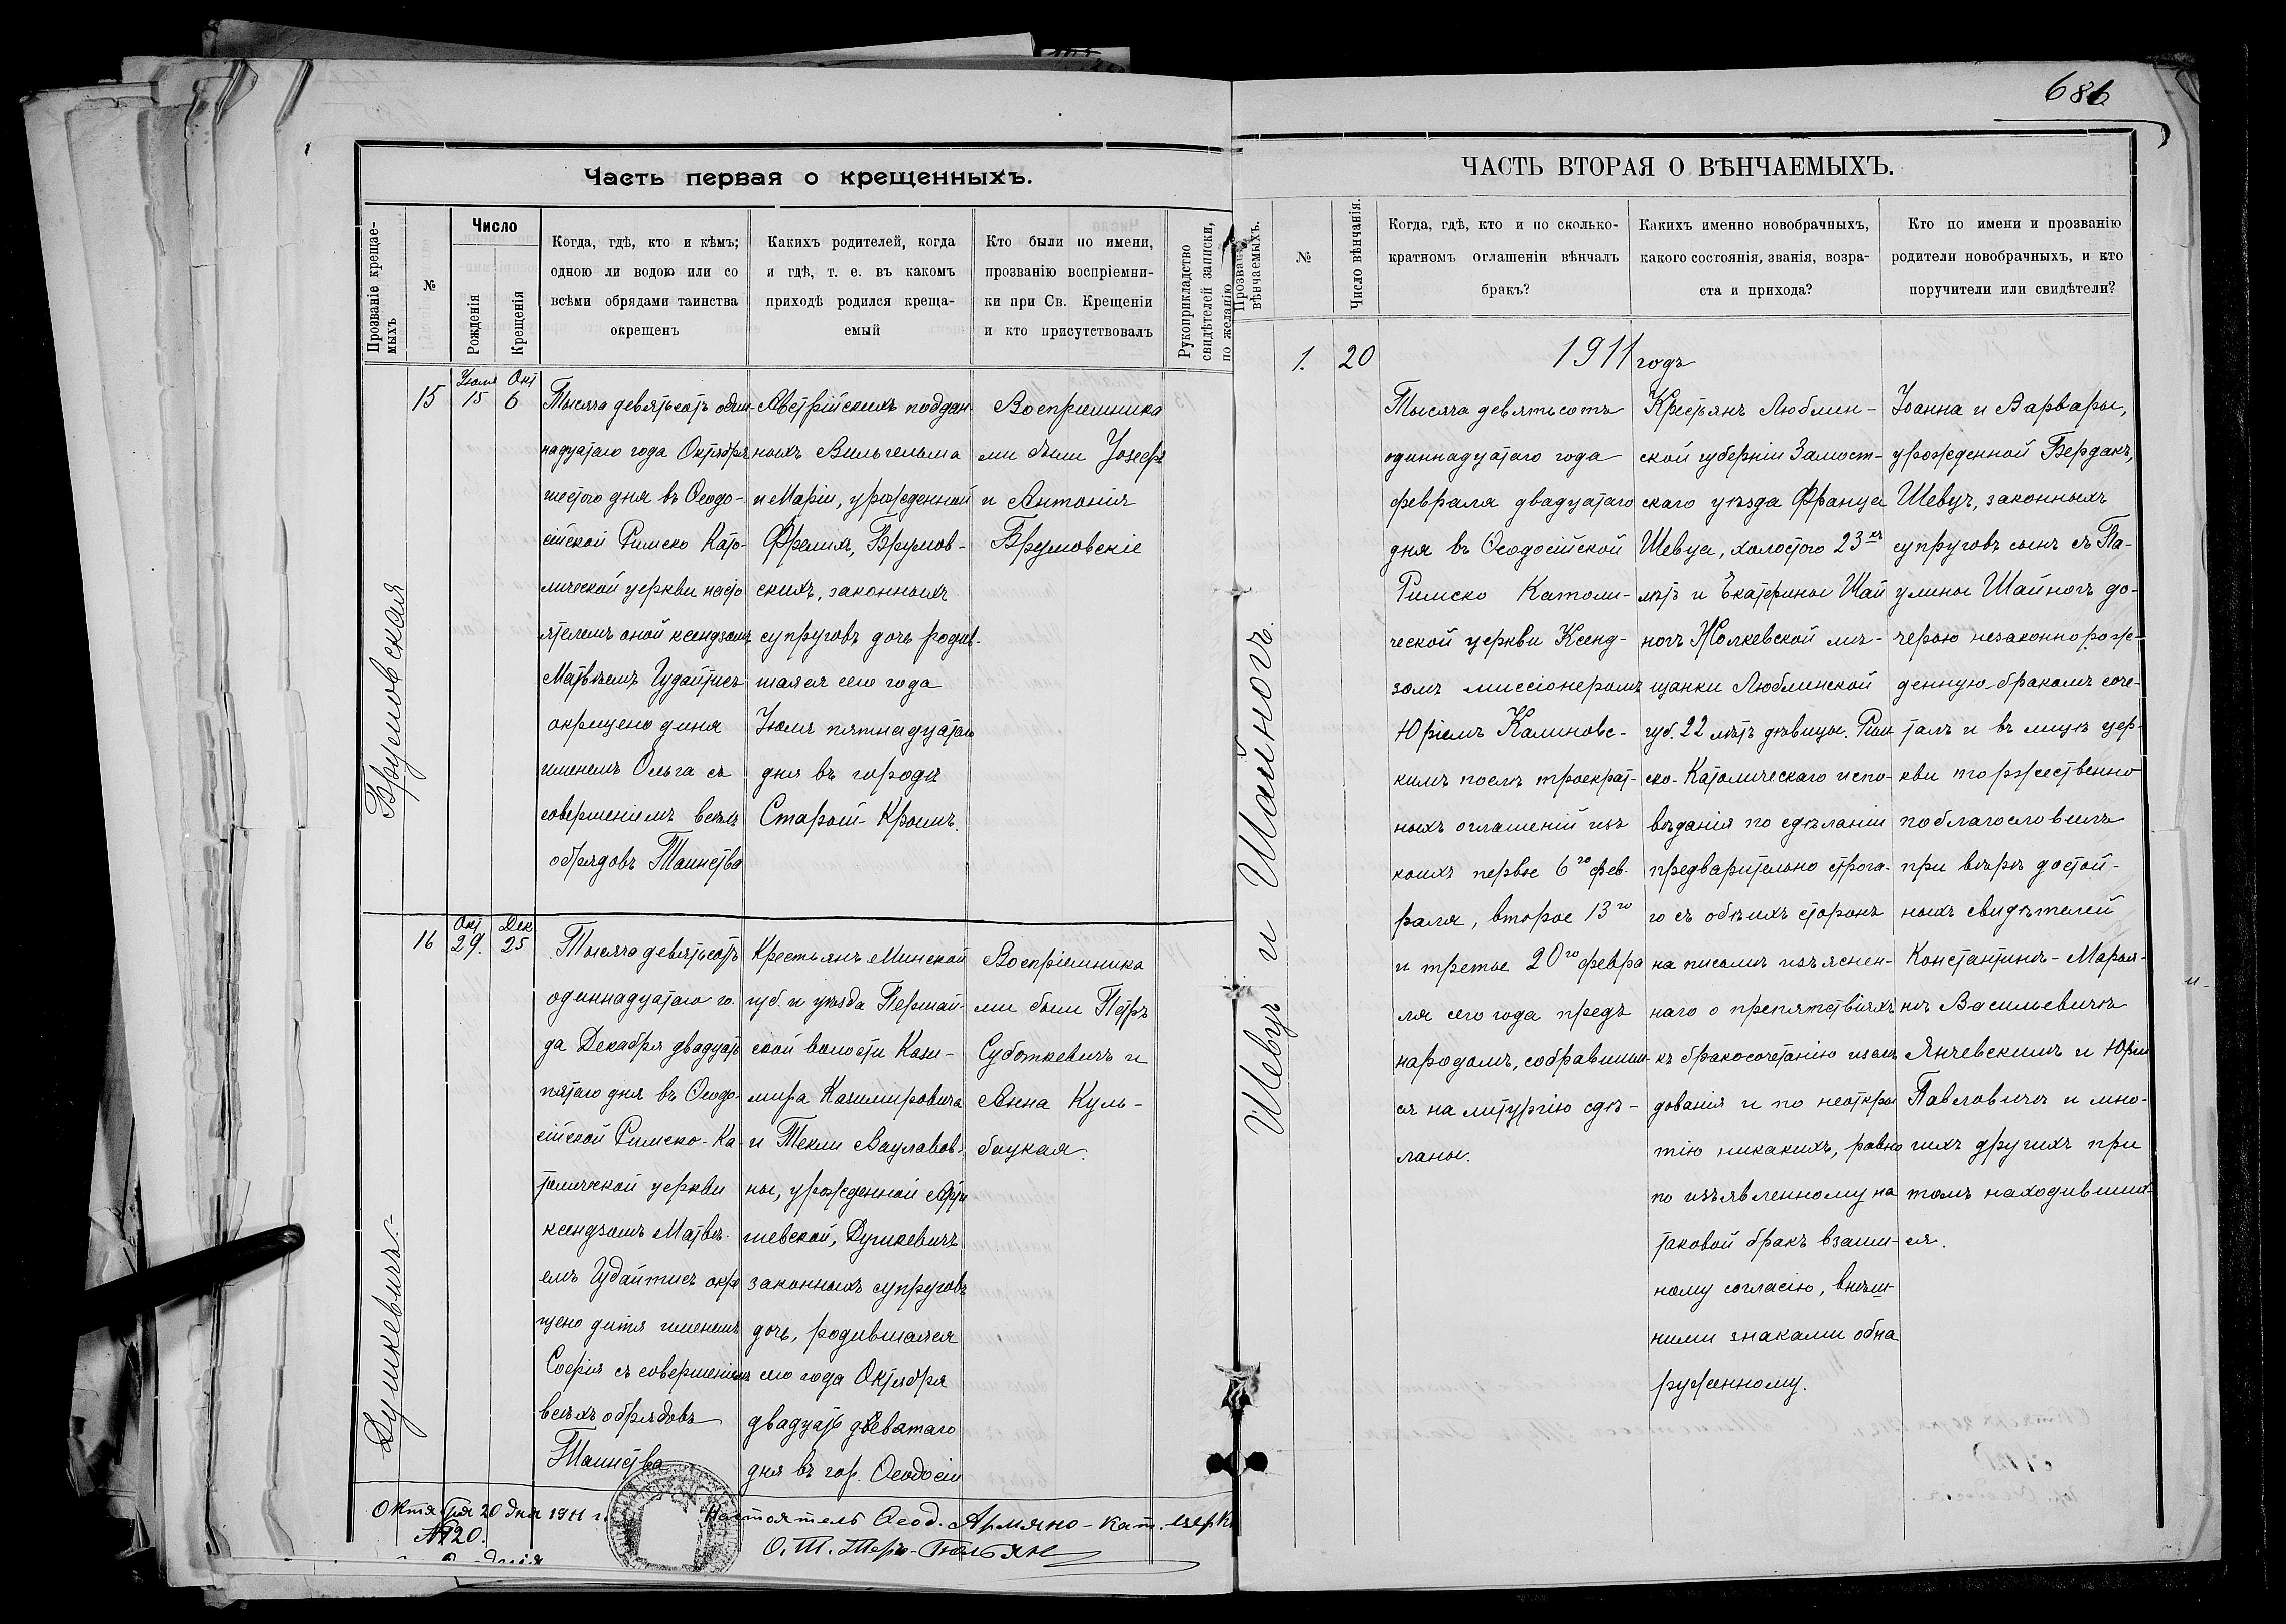 686
Часть первая о крещенныхъ.
Прозваніе крещае-
мыхъ
№
Число
Рожденія
Крещенія
Когда, гдѣ, кто и кѣмъ;
одною ли водою или со
всѣми обрядами таинства
окрещенъ
Какихъ родителей, когда
и гдѣ, т. е. въ какомъ
приходѣ родился креща-
емый
Кто были по имени,
прозванію воспріемни-
ки при Св. Крещеніи
и кто присутствовалъ
Рукоприкладство
свидѣтелей записки,
по желанію
Брумовская
15
Іюля
15
Окт
6
Тысяча девятьсотъ один-
надцатаго года Октября
шестого дня въ Ѳеодо-
сійской Римско Като-
лической церкви насто
ятелемъ оной ксендзомъ
Матвѣемъ Гудайтисъ
окрещено диня
именемъ Ольга съ
совершеніемъ всехъ
обрядовъ Таинства
Австрійскихъ поддан-
ныхъ Вильгельма
и Маріи, урожденной
Фрелих, Брумов-
скихъ, законныхъ
супруговъ дочь родив-
шаяся сего года
Іюля пятнадцатаго
дня въ городѣ
Старый-Крымъ.
Воспріемника
ми были Іосефъ
и Антонія
Брумовскіе
Душкевичъ.
16
Окт
29.
Дек
25
Тысяча девятьсотъ
одиннадцатаго го-
да Декабря двадцать
пятаго дня въ Ѳеодо-
сійской Римско-Ка-
толической церкви
ксендзомъ Матвѣ-
емъ Гудайтисъ окре
щено дитя именемъ
Софія съ совершеніемъ
всѣхъ обрядовъ
Таинства
Крестьянъ Минской
губ. и уѣзда Першай-
ской волости Кази-
мира Казимировича
и Текли Вацлавов-
ны, урожденной
Душкевичъ
законныхъ супруговъ
дочь, родившаяся
сего года Октября
двадцать девятаго
дня въ гор. Ѳеодосіи
Воспріемника
ми были Петръ
Суботкевичъ и
Анна Куль-
бацкая.
Октября 20 дня 1911 г.
№ 120.
Настоятель Ѳеод. Армяно-кат. церк
О. Т. Теръ-
ЧАСТЬ ВТОРАЯ О ВѢНЧАЕМЫХЪ.
Прозваніе
вѣнчаемыхъ.
№
Число вѣнчанія.
Когда, гдѣ, кто и по сколько-
кратномъ оглашеніи вѣнчалъ
бракъ?
Какихъ именно новобрачныхъ,
какого состоянія, званія, возра-
ста и прихода?
Кто по имени и прозванію
родители новобрачныхъ, и кто
поручители или свидѣтели?
Шевцъ и Шайногъ.
1.
20
1911 годъ
Тысяча девятьсотъ
одиннадцатаго года
февраля двадцатаго
дня въ Ѳеодосійской
Римско Католи-
ческой церкви Ксенд-
зомъ миссіонеромъ
Юріемъ Калиновс-
кимъ послѣ троекрат-
ныхъ оглашеній изъ
коихъ первое 6го фев-
раля, второе 13го
и третье 20го февра
ля сего года предъ
народомъ, собравшим-
ся на литургію сдѣ-
ланы.
Крестьянъ Люблин-
ской губерніи Замост-
скаго уѣзда Франца
Шевца, холостого 23хъ
лѣтъ и Екатерины Шай
ногъ Жолкевской мѣ-
щанки Люблинской
губ. 22 лѣтъ дѣвицы. Рим
ско-Католическаго испо-
вѣданія по сдѣланіи
предварительно строга-
го съ обѣихъ сторонъ
на письмѣ изъяснен-
наго о препятствіяхъ
къ бракосочетанію изслѣ
дованія и по неоткры
тію никакихъ, равно
по изъявленному на
таковой бракъ взаим-
ному согласію, внѣш-
ними знаками обна
руженному.
Іоанна и Варвары,
урожденной Бердакъ,
Шевцъ, законныхъ
супруговъ сынъ съ Па-
улины Шайногъ до-
черью незаконнорож-
денную-бракомъ соче-
талъ и въ лицѣ цер-
кви торжественно
поблагословилъ
при вѣрѣ достой-
ныхъ свидѣтелей
Константинъ-Марья-
нъ Васильевичъ
Янчевскимъ и Юріи
Павловичъ и мно-
гихъ другихъ при
томъ находивших-
ся.